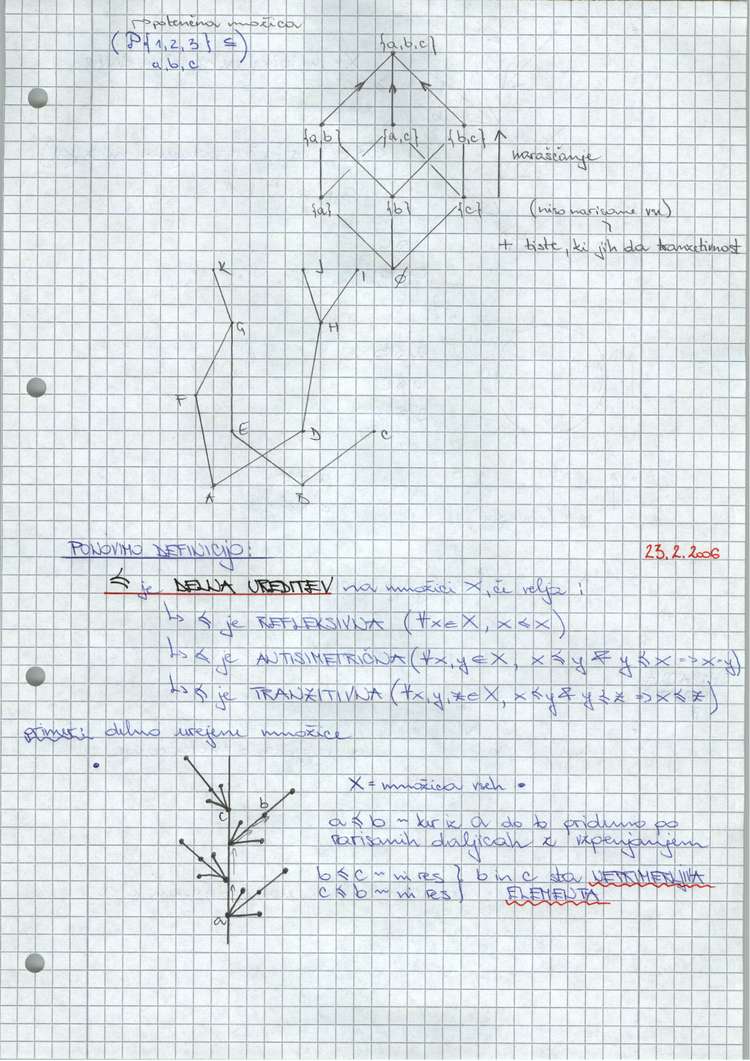 → potenčna množica
(P{1,2,3} ⊆)
a,b,c
{a,b,c}
{a,b} {a,c} {b,c}
naraščanje
{a} {b} {c}
(niso narisane vse)
+ tiste, ki jih da tranzitivnost
∅
K J I
G H
F
E D C
A B
PONOVIMO DEFINICIJO:
23.2.2006
≼ je DELNA UREDITEV na množici X, če velja:
↳ ≼ je REFLEKSIVNA (∀x∈X, x≼x)
↳ ≼ je ANTISIMETRIČNA (∀x,y∈X, x≼y & y≼x => x=y)
↳ ≼ je TRANZITIVNA (∀x,y,z∈X, x≼y & y≼z => x≼z)
primeri: delno urejene množice
X = množica vseh •
a≼b ~ kar iz a do b pridemo po
narisanih daljicah z vzpenjanjem
b≼c ~ ni res } b in c sta NEPRIMERLJIVA
c≼b ~ ni res } ELEMENTA
b
c
a